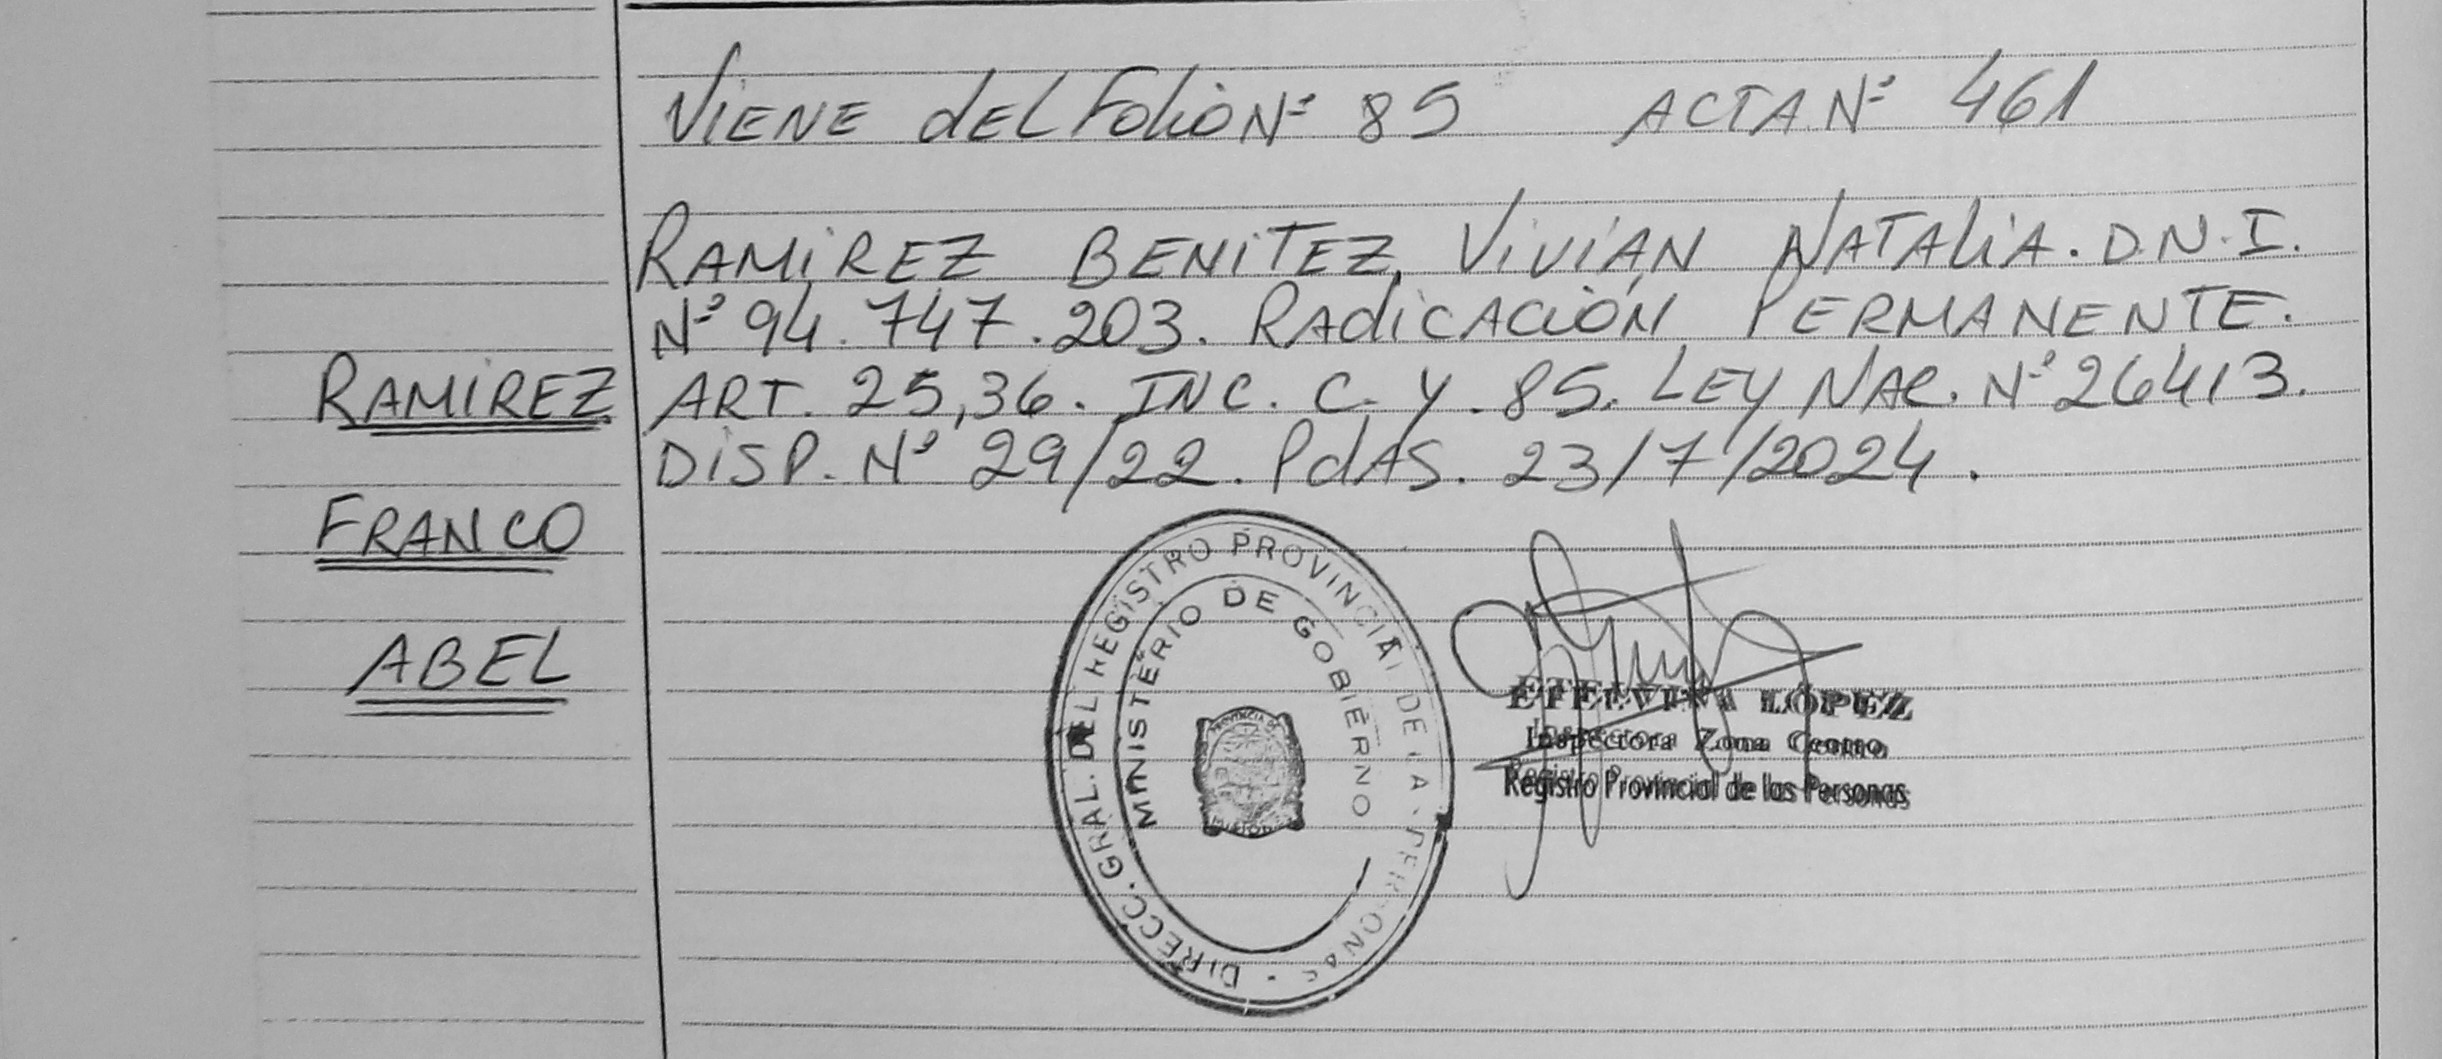 VIENE dEL Folio Nº 85 ACTA Nº 461
RAMIREZ BENITEZ, ViViÁN NATALiA. D.N.I.
Nº 94.747.203. RAdiCACiÓN PERMANENTE.
RAMIREZ
ART. 25,36. INC. C. Y. 85. LEY NAC. Nº 26413.
DiSP. Nº 29/22. PdAS. 23/7/2024.
FRANCO
ABEL
DIRECC. GRAL. DEL REGISTRO PROVINCIAL DE LAS PERSONAS
MINISTERIO DE GOBIERNO
PROVINCIA DE
MISIONES
ETELVINA LOPEZ
Inspectora Zona Centro
Registro Provincial de las Personas